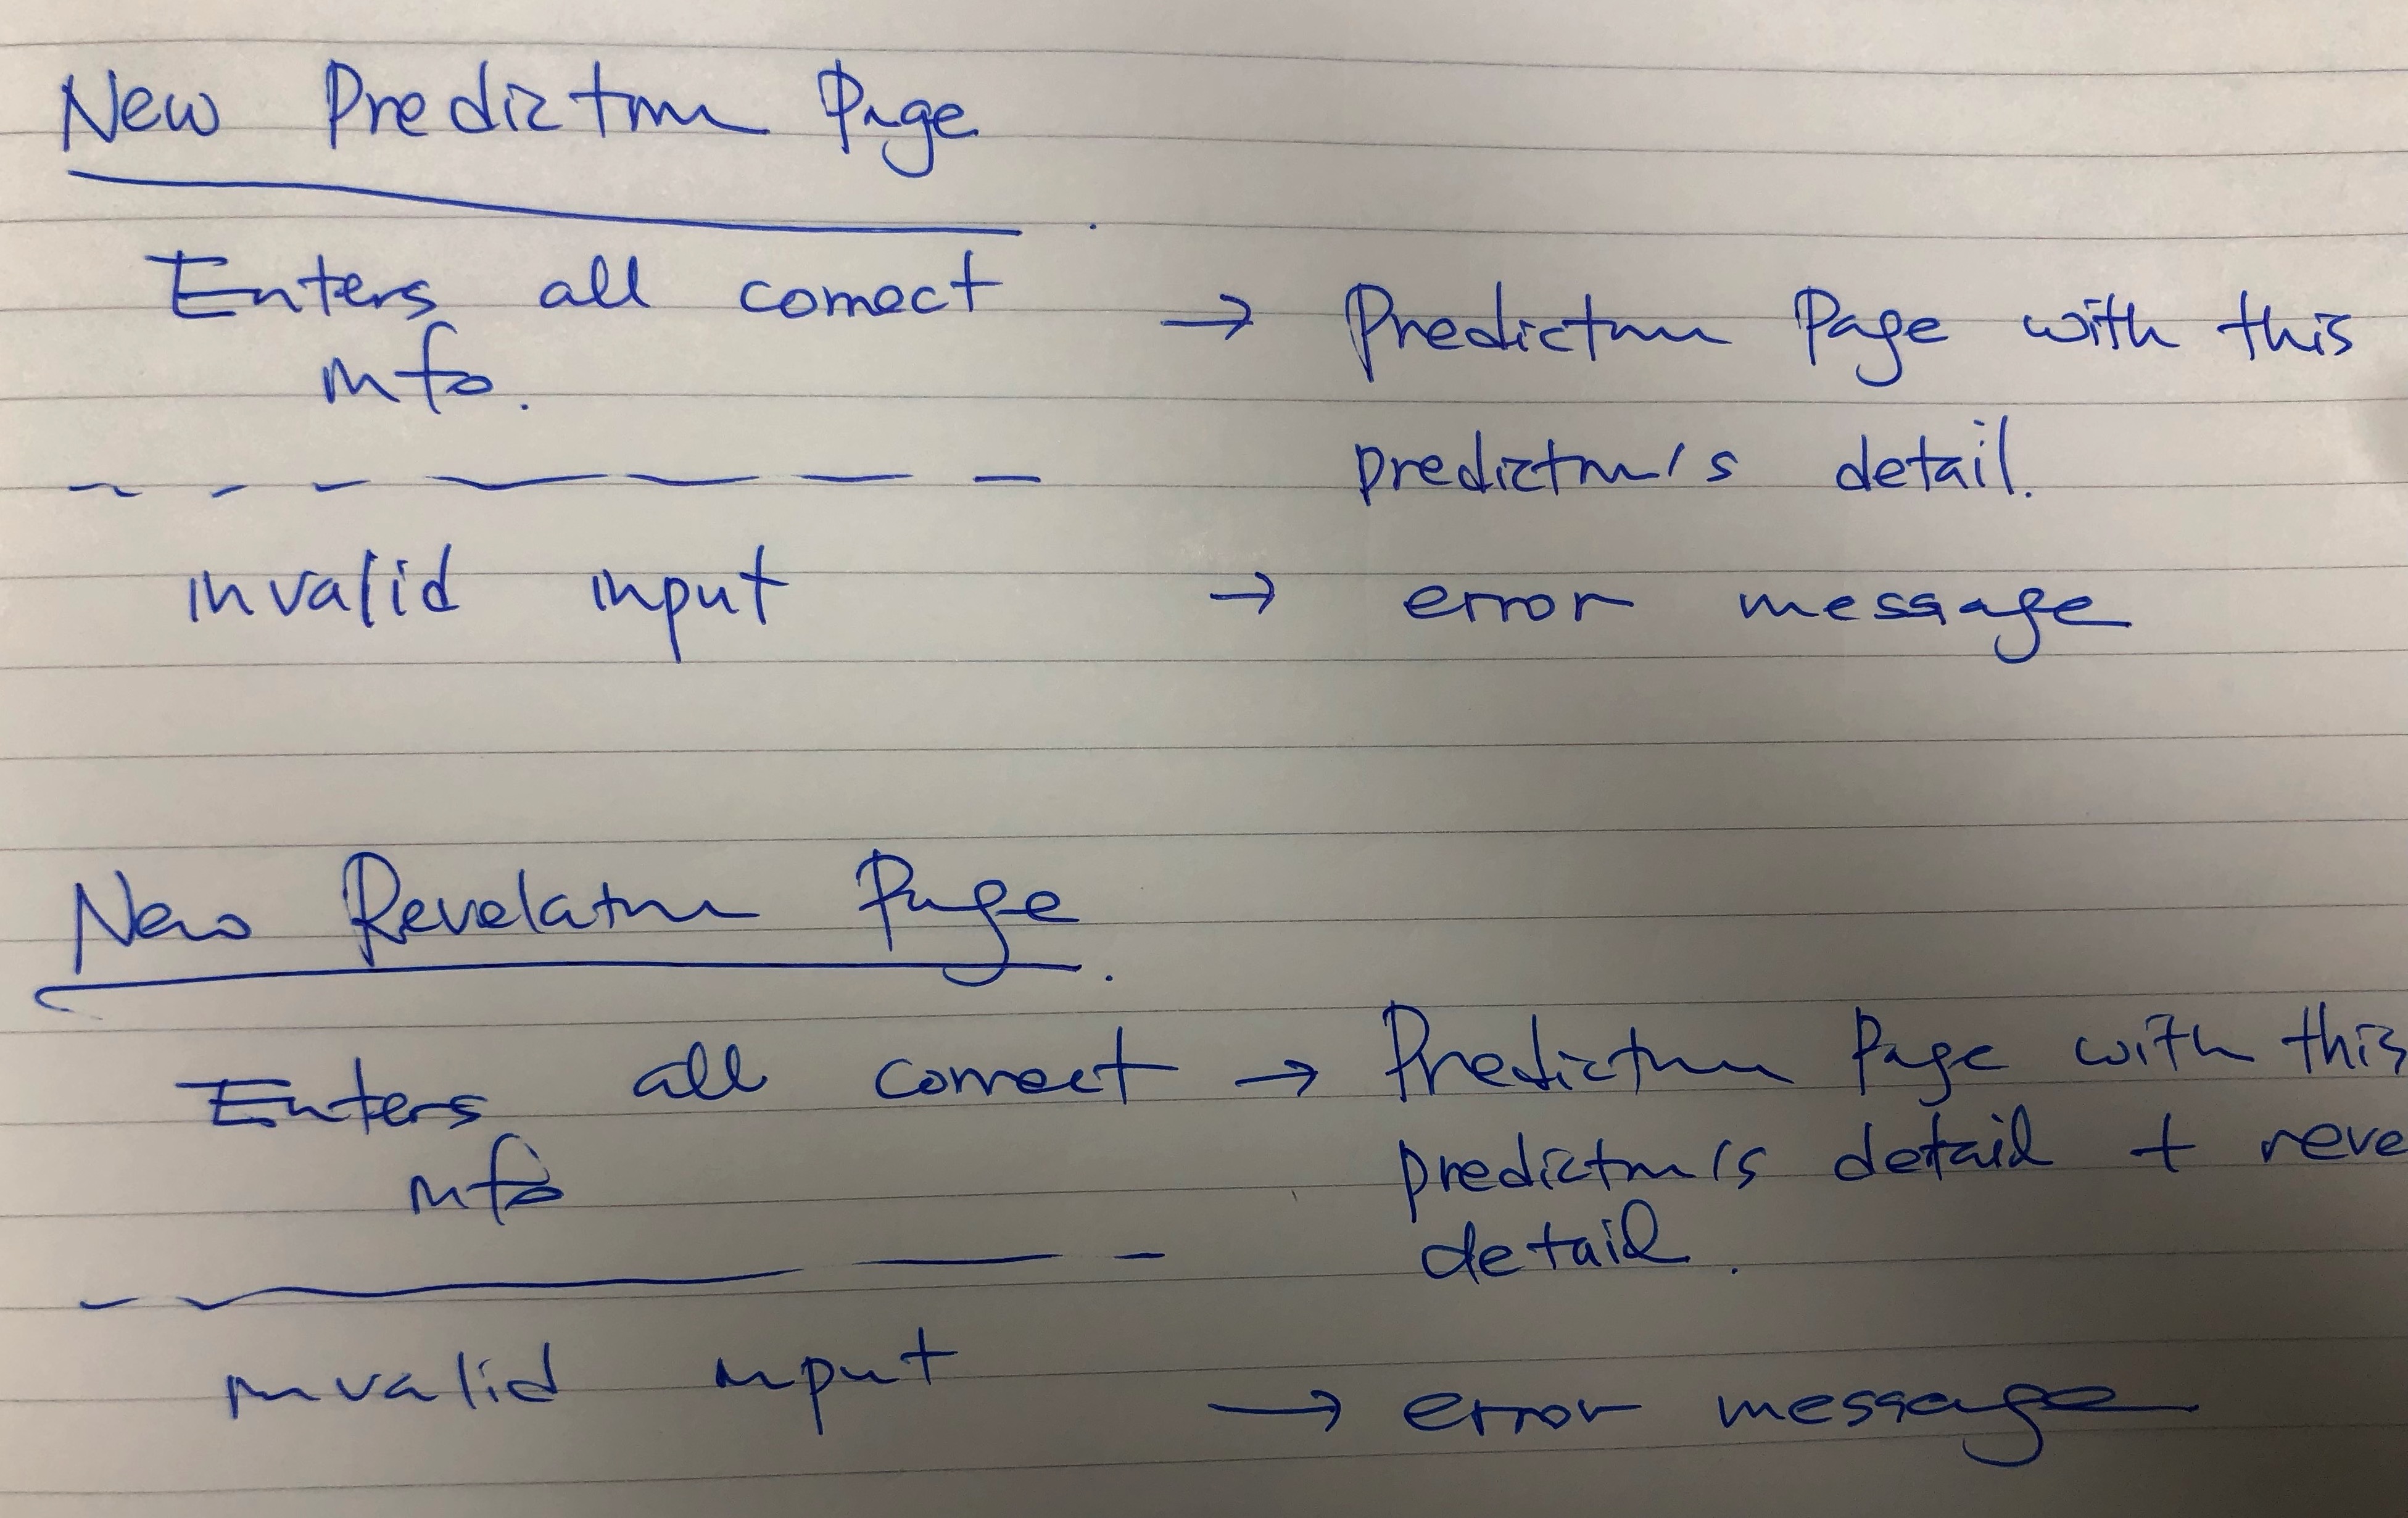 New Prediction Page
Enters all correct
info.
→ Prediction Page with this
prediction's detail.
invalid input → error message
New Revelation Page.
Enters all correct → Prediction Page with this
info
prediction's detail + reve
detail.
invalid input → error message